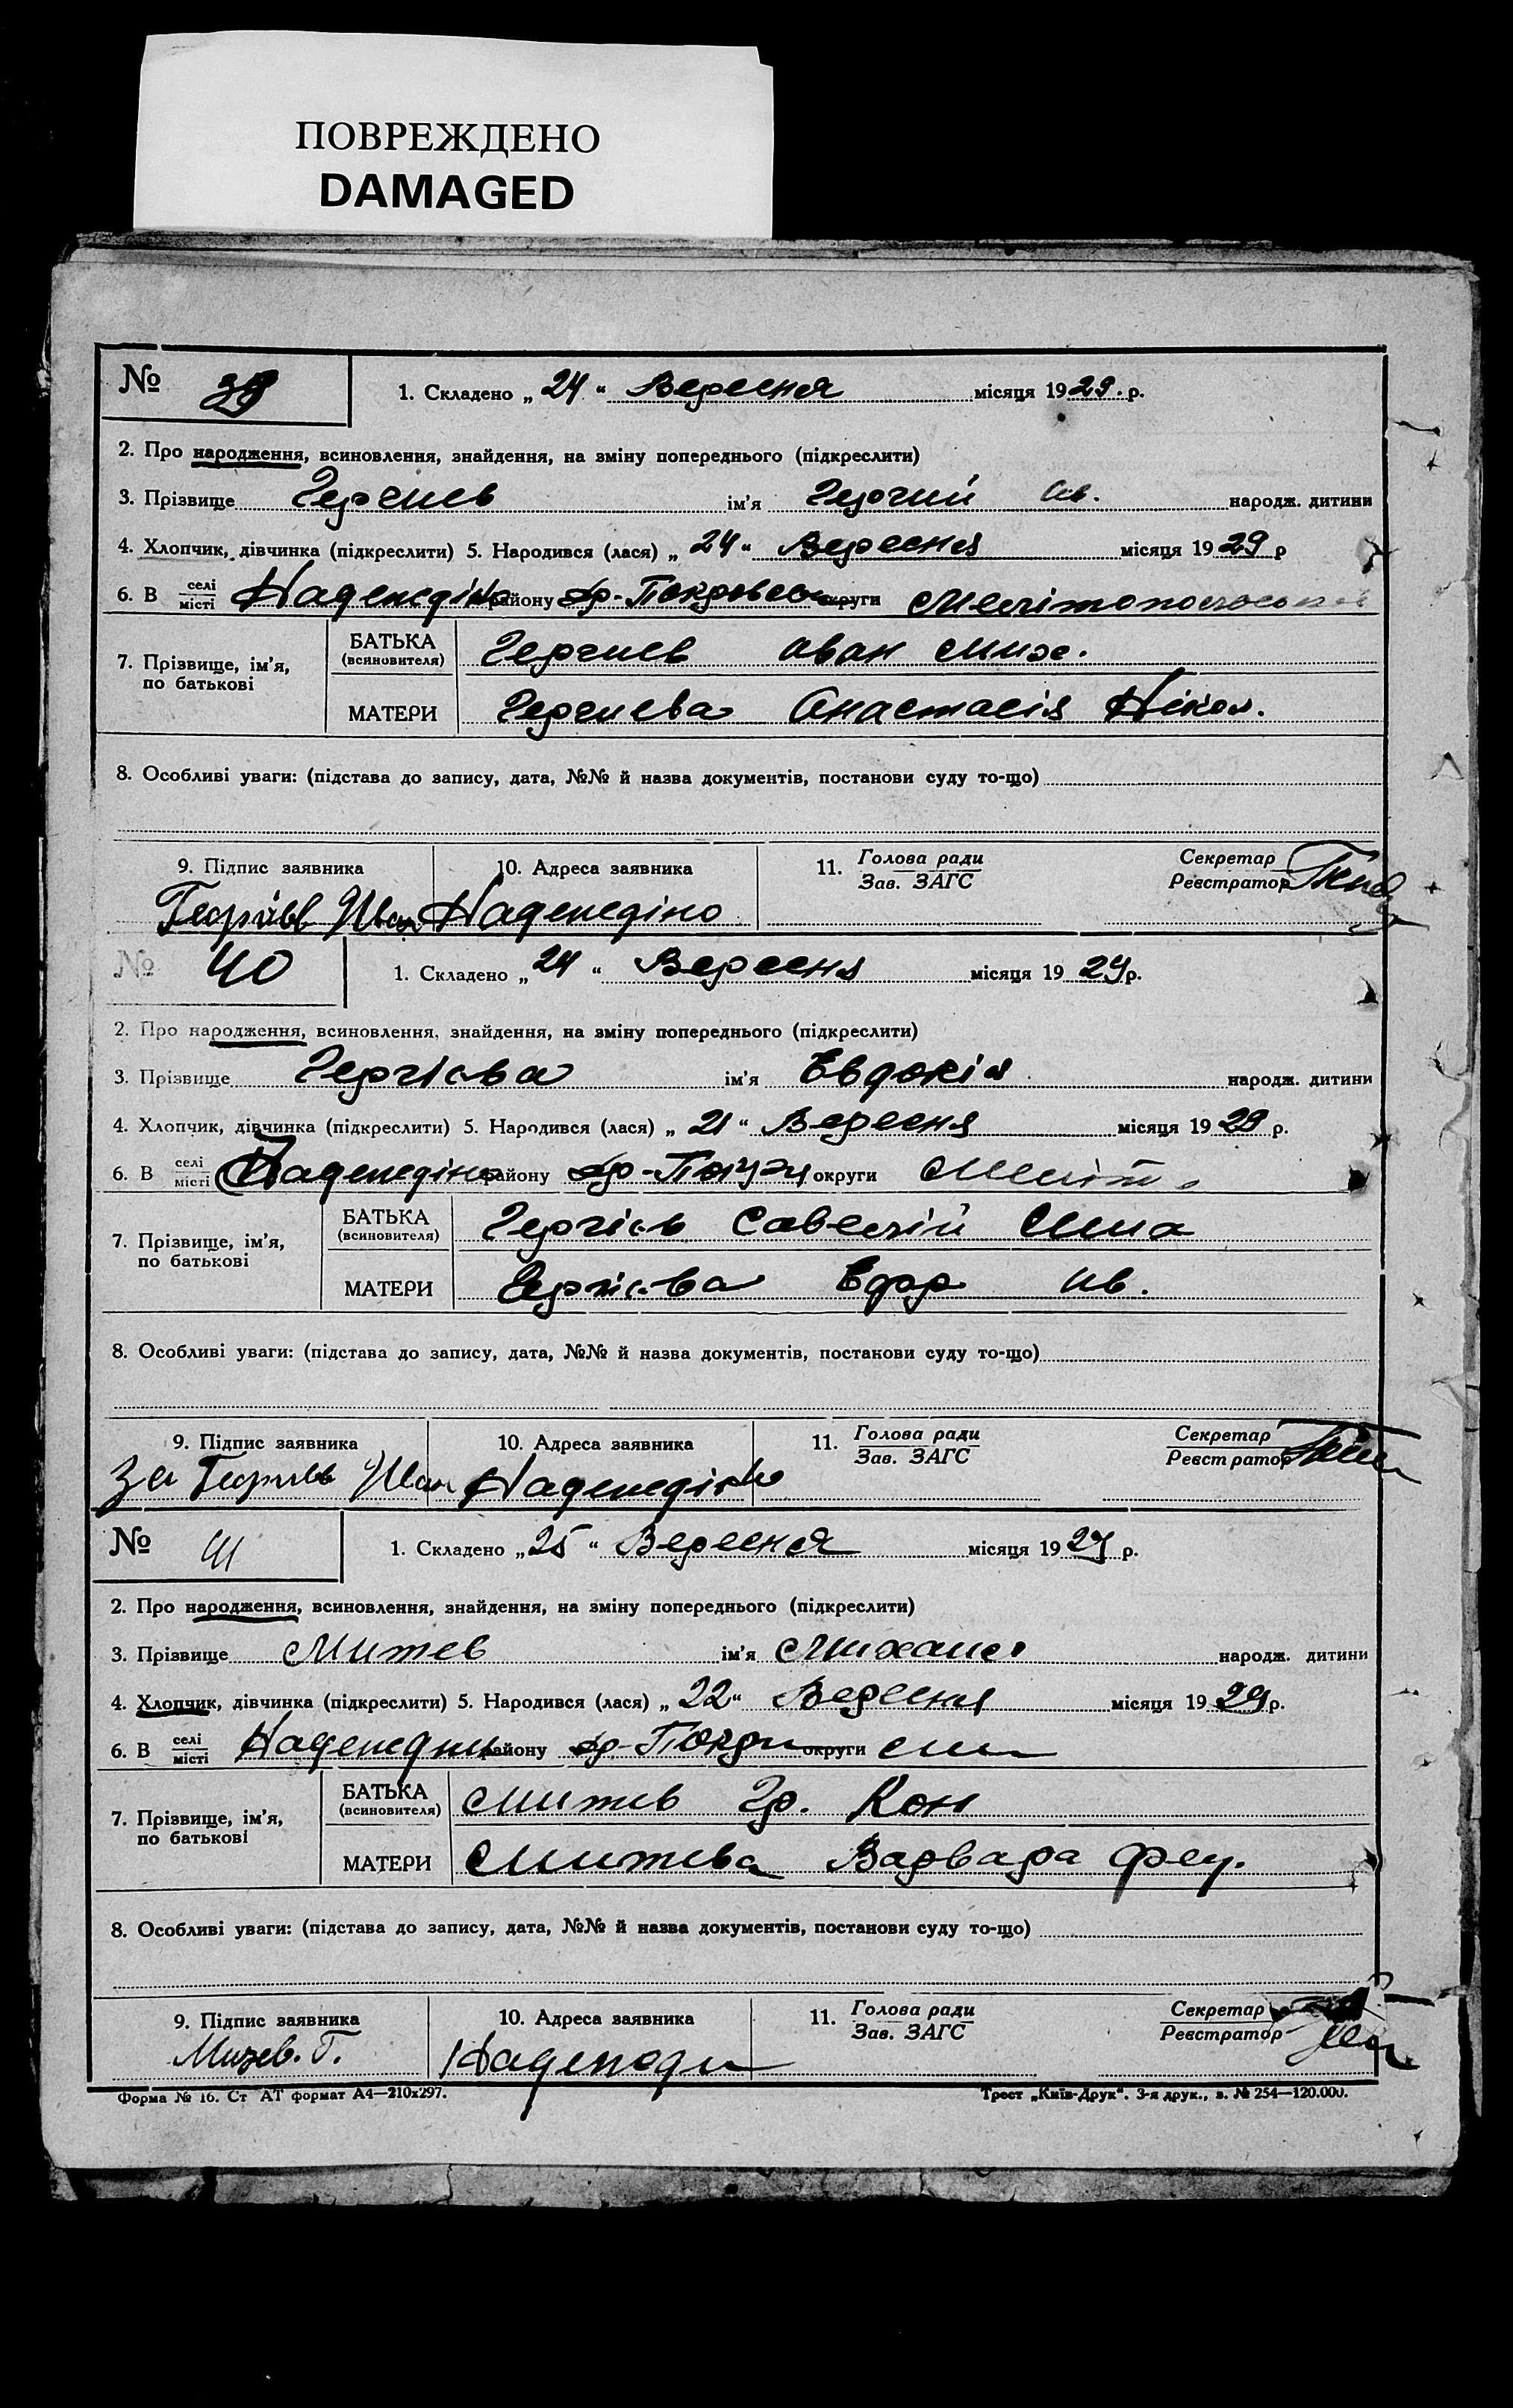 ПОВРЕЖДЕНО
DAMAGED
№ 39 1. Складено „ 24 “ Вересня місяця 1929. р.
2. Про народження, всиновлення, знайдення, на зміну попереднього (підкреслити)
3. Прізвище Гергиев ім'я Гергий Ив. народж. дитини
4. Хлопчик, дівчинка (підкреслити) 5. Народився (лася) „ 24 “ Вересня місяця 1929 р
6. В селі місті Надеждіно району Др-Покровськ округи Мелітопольської
7. Прізвище, ім'я, по батькові БАТЬКА (всиновителя) Гергиев Иван Мих.
МАТЕРИ Гергиева Анастасія Нікол.
8. Особливі уваги: (підстава до запису, дата, №№ й назва документів, постанови суду то-що)
9. Підпис заявника 10. Адреса заявника 11. Голова ради Зав. ЗАГС Секретар Реєстратор
Георгиев Иван Надеждіно
№ 40 1. Складено „ 24 “ Вересня місяця 1929 р.
2. Про народження, всиновлення, знайдення, на зміну попереднього (підкреслити)
3. Прізвище Гергієва ім'я Евдокія народж. дитини
4. Хлопчик, дівчинка (підкреслити) 5. Народився (лася) „ 21 “ Вересня місяця 1929 р.
6. В селі місті Надеждіно району округи Меліт.
7. Прізвище, ім'я, по батькові БАТЬКА (всиновителя) Гергієв Савелій
МАТЕРИ Гергієва Ив.
8. Особливі уваги: (підстава до запису, дата, №№ й назва документів, постанови суду то-що)
9. Підпис заявника 10. Адреса заявника 11. Голова ради Зав. ЗАГС Секретар Реєстратор
За Георгиев Иван Надеждіно
№ 41 1. Складено „ 25 “ Вересня місяця 1929 р.
2. Про народження, всиновлення, знайдення, на зміну попереднього (підкреслити)
3. Прізвище Митев ім'я Михаил народж. дитини
4. Хлопчик, дівчинка (підкреслити) 5. Народився (лася) „ 22 “ Вересня місяця 1929 р.
6. В селі місті району округи
7. Прізвище, ім'я, по батькові БАТЬКА (всиновителя) Митев Гр. Кон
МАТЕРИ Митева Варвара Фед.
8. Особливі уваги: (підстава до запису, дата, №№ й назва документів, постанови суду то-що)
9. Підпис заявника 10. Адреса заявника 11. Голова ради Зав. ЗАГС Секретар Реєстратор
Форма № 16. Ст АТ формат А4—210х297. Трест „Київ-Друк“. 3-я друк., з. № 254—120.000.